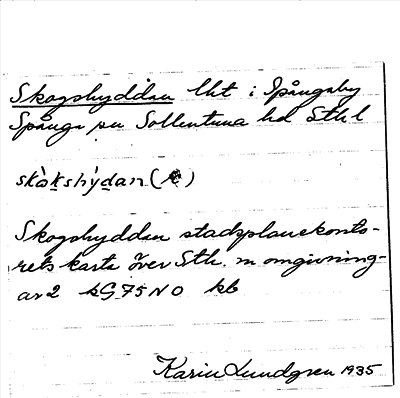 Skogshyddan lht i Spångaby
Spånga sn Sollentuna hd Sthl
skòkshỳdan (
Skogshyddan stadsplanekonto-
rets karta över Sth. m omgivning-
ar 2 kG 75 N O kb
Karin Lundgren 1935